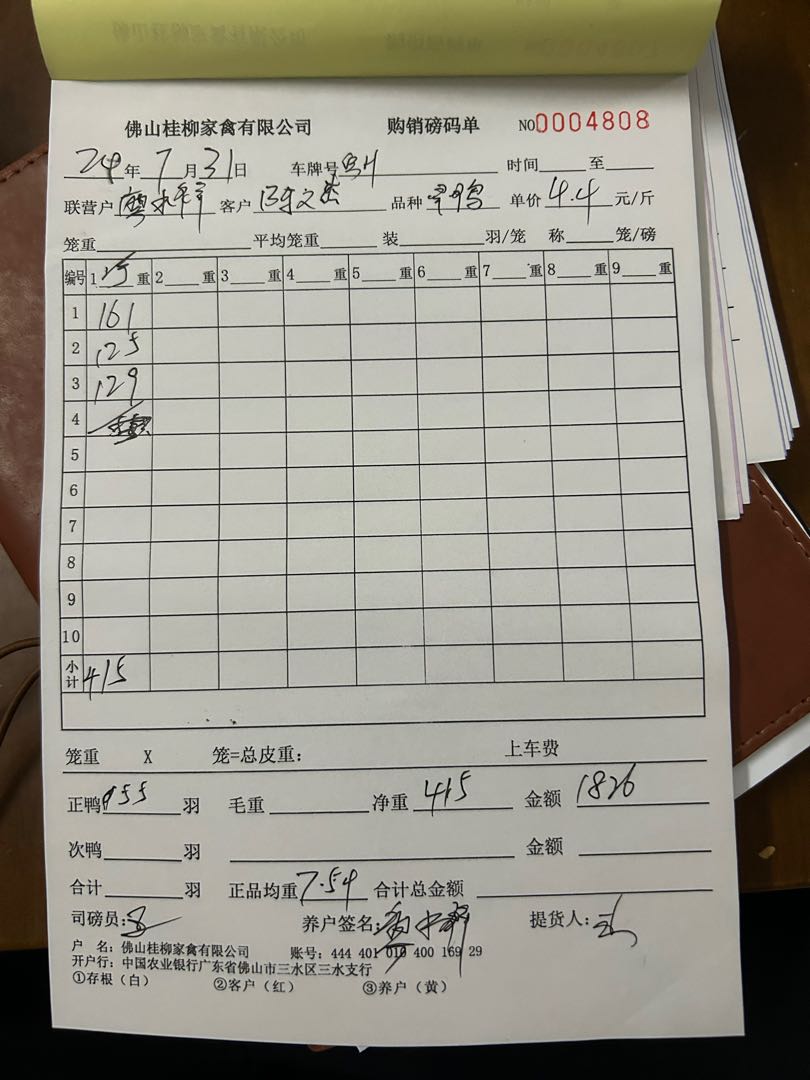 佛山桂柳家禽有限公司 购销磅码单 NO0004808
24年7月31日 车牌号 时间 至
联营户 廖木祥 客户 陈文杰 品种 单价 4.4 元/斤
笼重 平均笼重 装 羽/笼 称 笼/磅
编号 1 净重 2 重 3 重 4 重 5 重 6 重 7 重 8 重 9 重
1 161
2 125
3 129
4
5
6
7
8
9
10
小计 415
笼重 X 笼=总皮重: 上车费
正鸭 55 羽 毛重 净重 415 金额 1826
次鸭 羽 金额
合计 羽 正品均重 7.54 合计总金额
司磅员: 养户签名: 提货人:
户 名: 佛山桂柳家禽有限公司 账号: 444 401 010 400 169 29
开户行: 中国农业银行广东省佛山市三水区三水支行
①存根（白） ②客户（红） ③养户（黄）